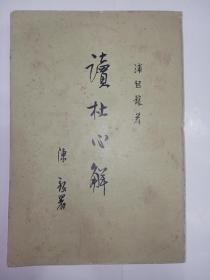 浦起龍著
讀杜心解
陳毅署